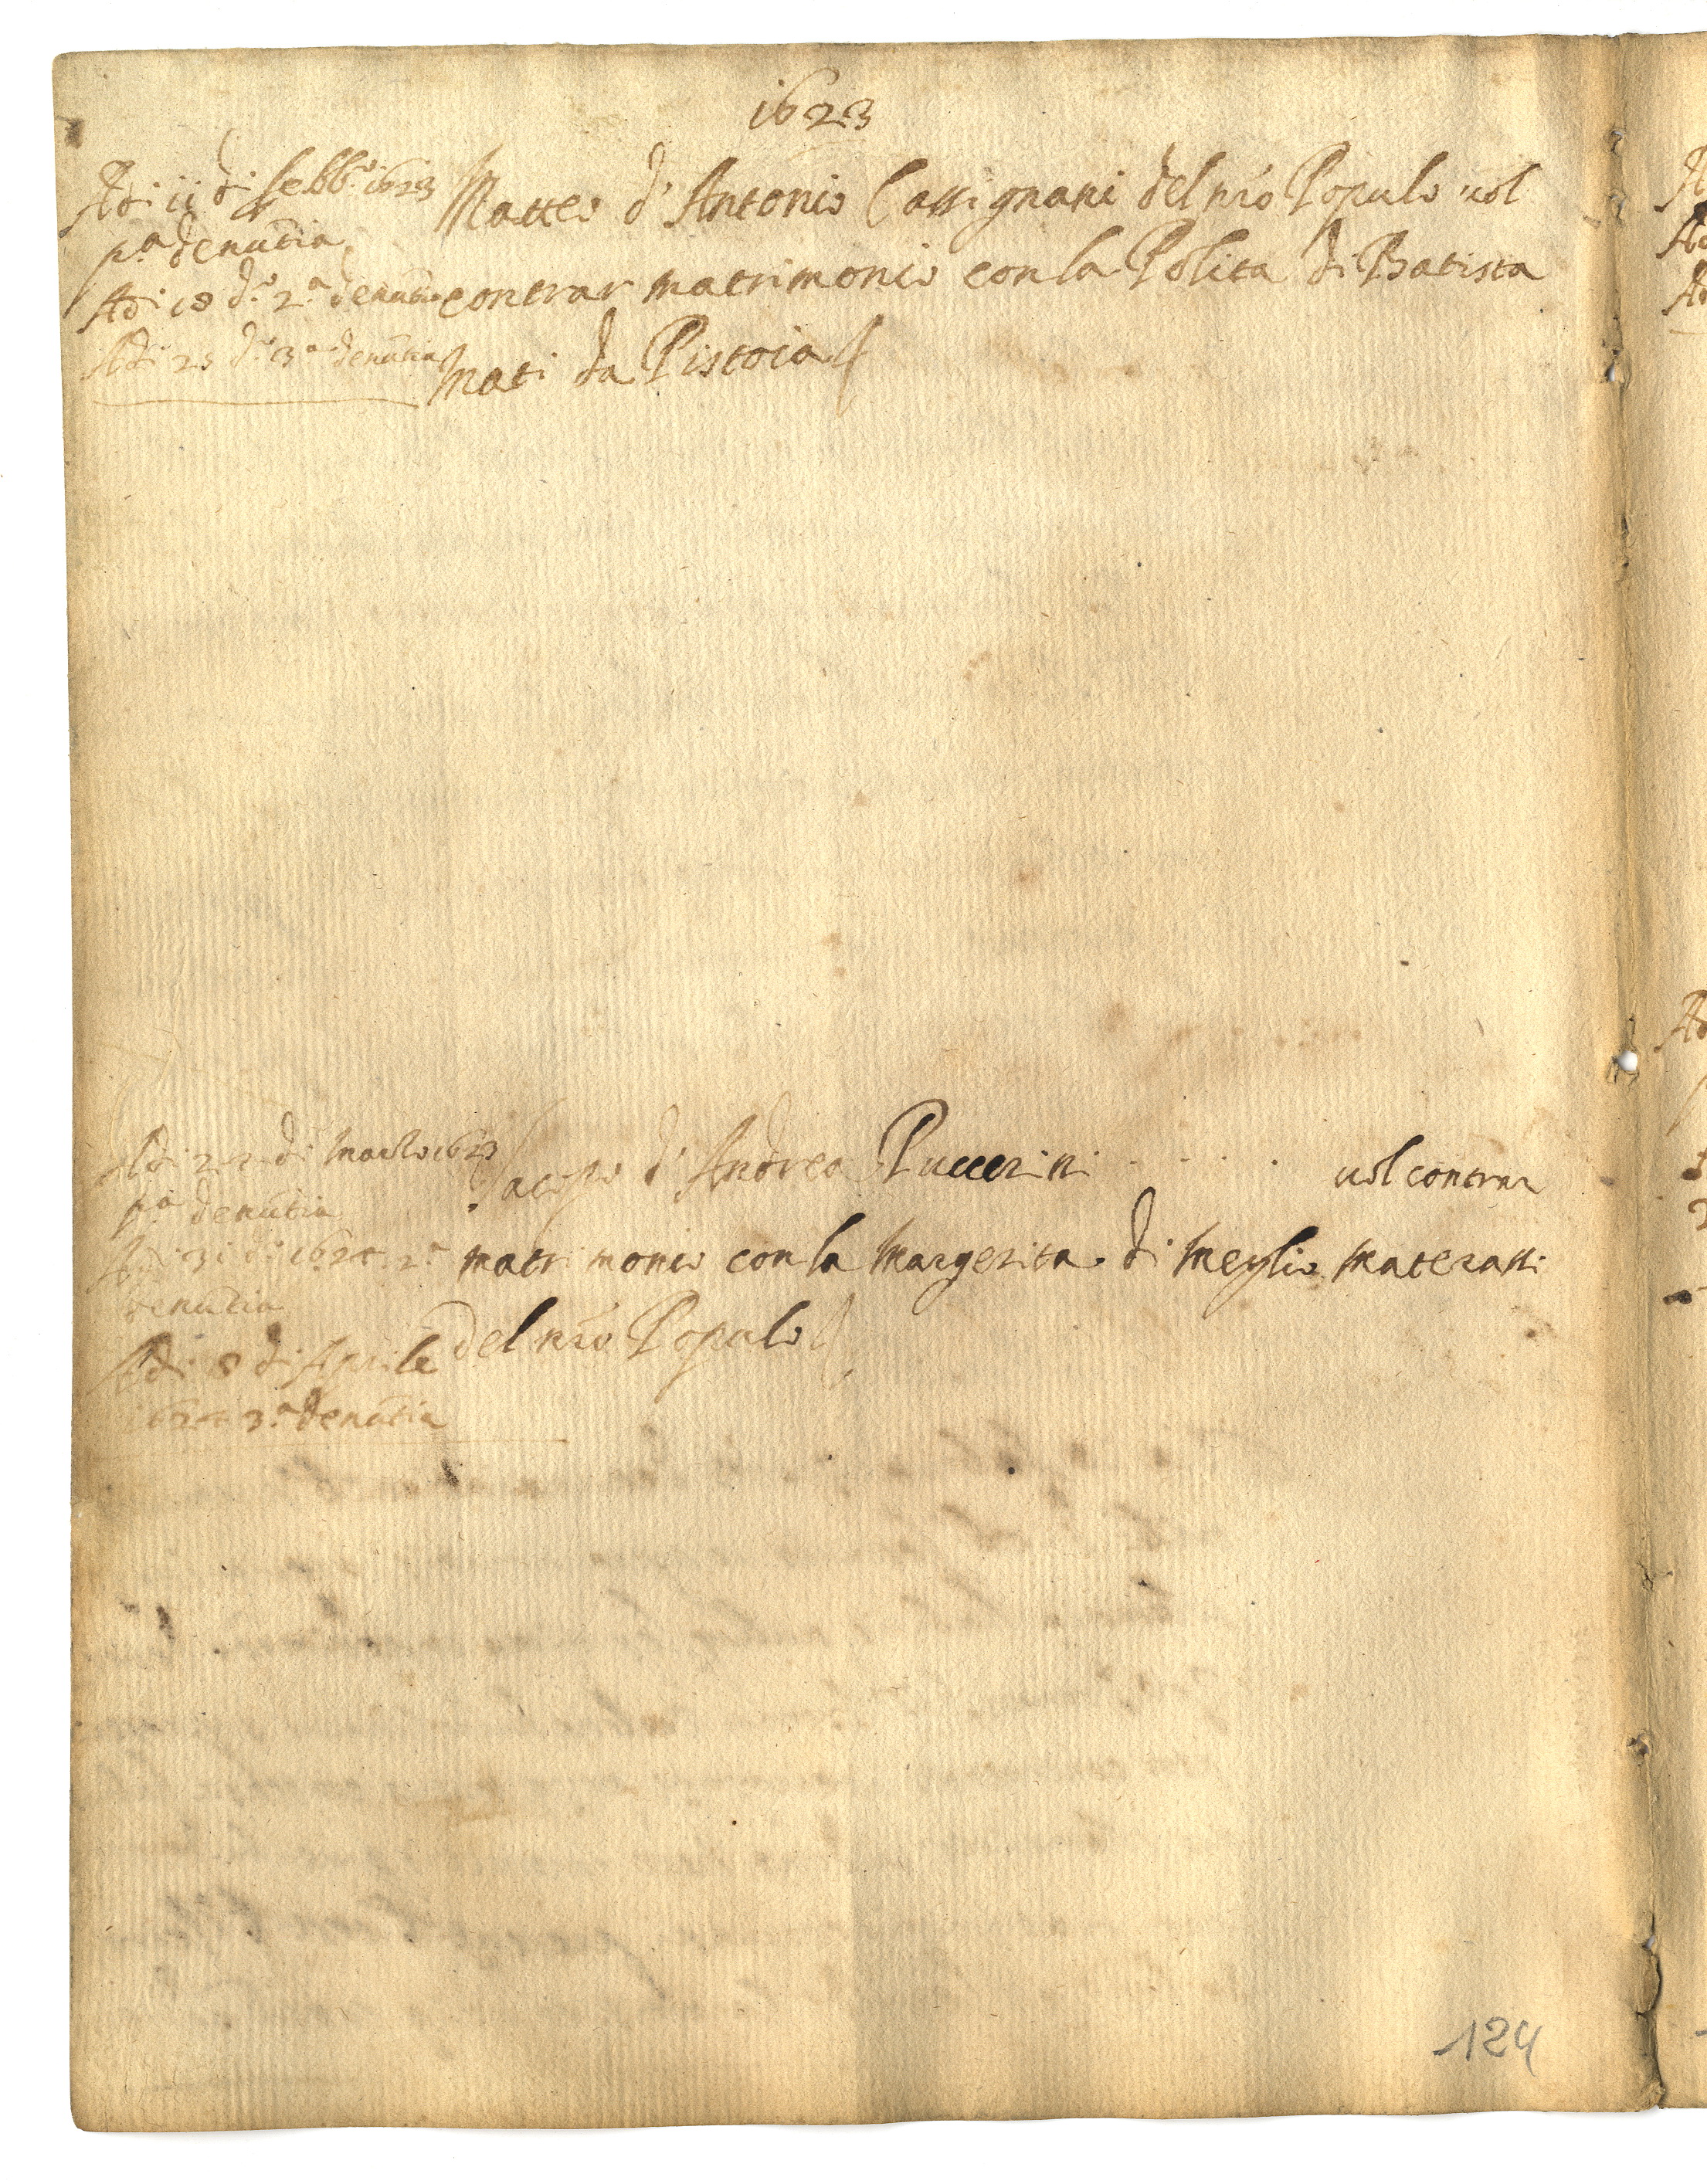 1623
Adi ii di febb.o 1623
p.a denūtia
Adi 18 d.o 2.a denūtia
Adi 25 d.o 3.a denūtia
Matteo d'Antonio Cassignani del nr̄o Populo uol
contrar matrimonio con la Polita di Batista
Mati da Pistoia
Adi 25 di Marzo 1623
p.a denūtia
Adi 31 di 1624 2.a
denūtia
Adi 8 di Aprile
1624 3.a denūtia
Jacopo d'Andrea Puccerini . . . . uol contrar
matrimonio con la Margerita di Meglio Materassi
del nr̄o Populo
124